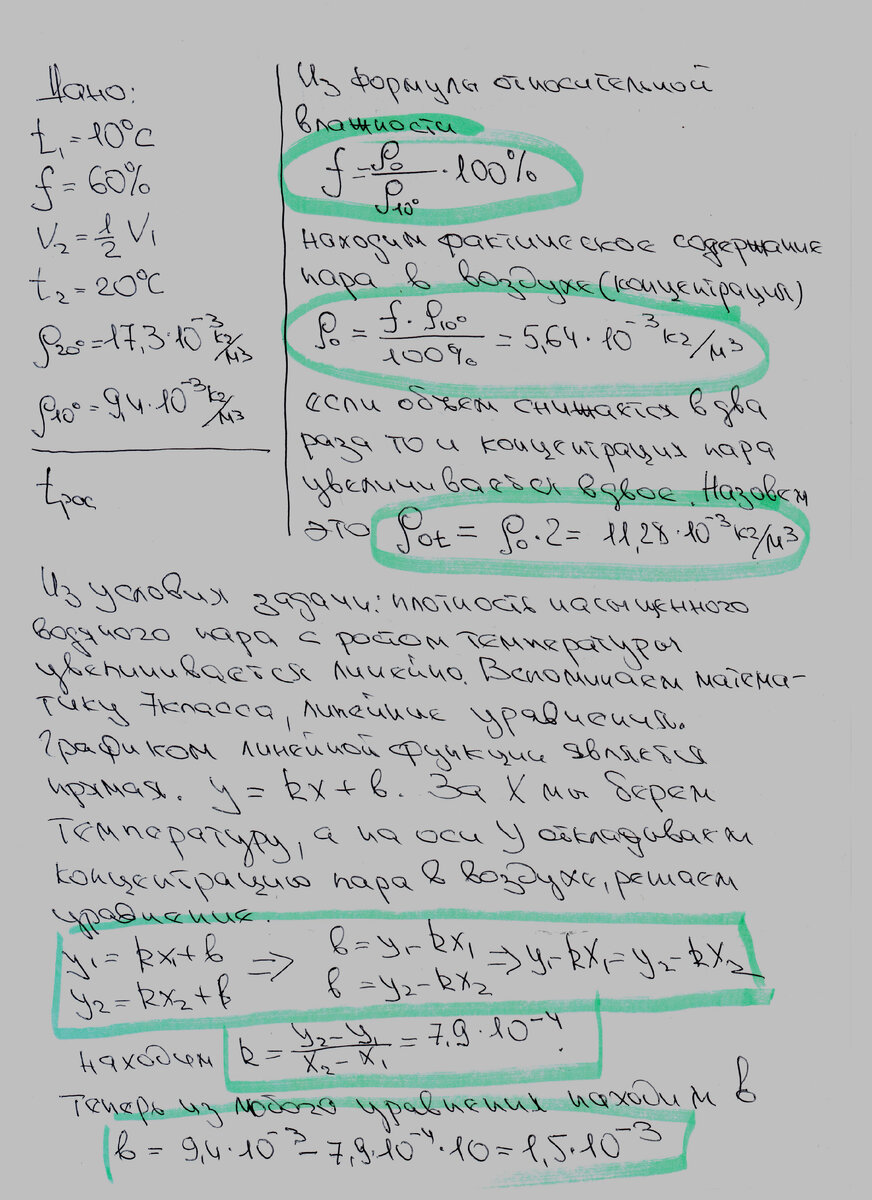 Дано:
t₁ = 10°C
f = 60%
V₂ = 1/2 V₁
t₂ = 20°C
ρ20° = 17,3·10⁻³ кг/м³
ρ10° = 9,4·10⁻³ кг/м³
tрос
Из формулы относительной
влажности
f = ρ₀/ρ10° · 100%
находим фактическое содержание
пара в воздухе (концентрация)
ρ₀ = f·ρ10°/100% = 5,64·10⁻³ кг/м³
если объем снижается в два
раза то и концентрация пара
увеличивается вдвое. Назовем
это ρ0t = ρ₀·2 = 11,28·10⁻³ кг/м³
Из условия задачи: плотность насыщенного
водяного пара с ростом температуры
увеличивается линейно. Вспоминаем матема-
тику 7класса, линейные уравнения.
Графиком линейной функции является
прямая. y = kx + в. За X мы берем
температуру, а на оси У откладываем
концентрацию пара в воздухе, решаем
уравнение.
y₁ = kx₁ + в ⇒ в = y₁ - kx₁ ⇒ y₁ - kx₁ = y₂ - kx₂
y₂ = kx₂ + в в = y₂ - kx₂
находим k = y₂ - y₁/x₂ - x₁ = 7,9·10⁻⁴.
Теперь из любого уравнения находим в
в = 9,4·10⁻³ - 7,9·10⁻⁴·10 = 1,5·10⁻³